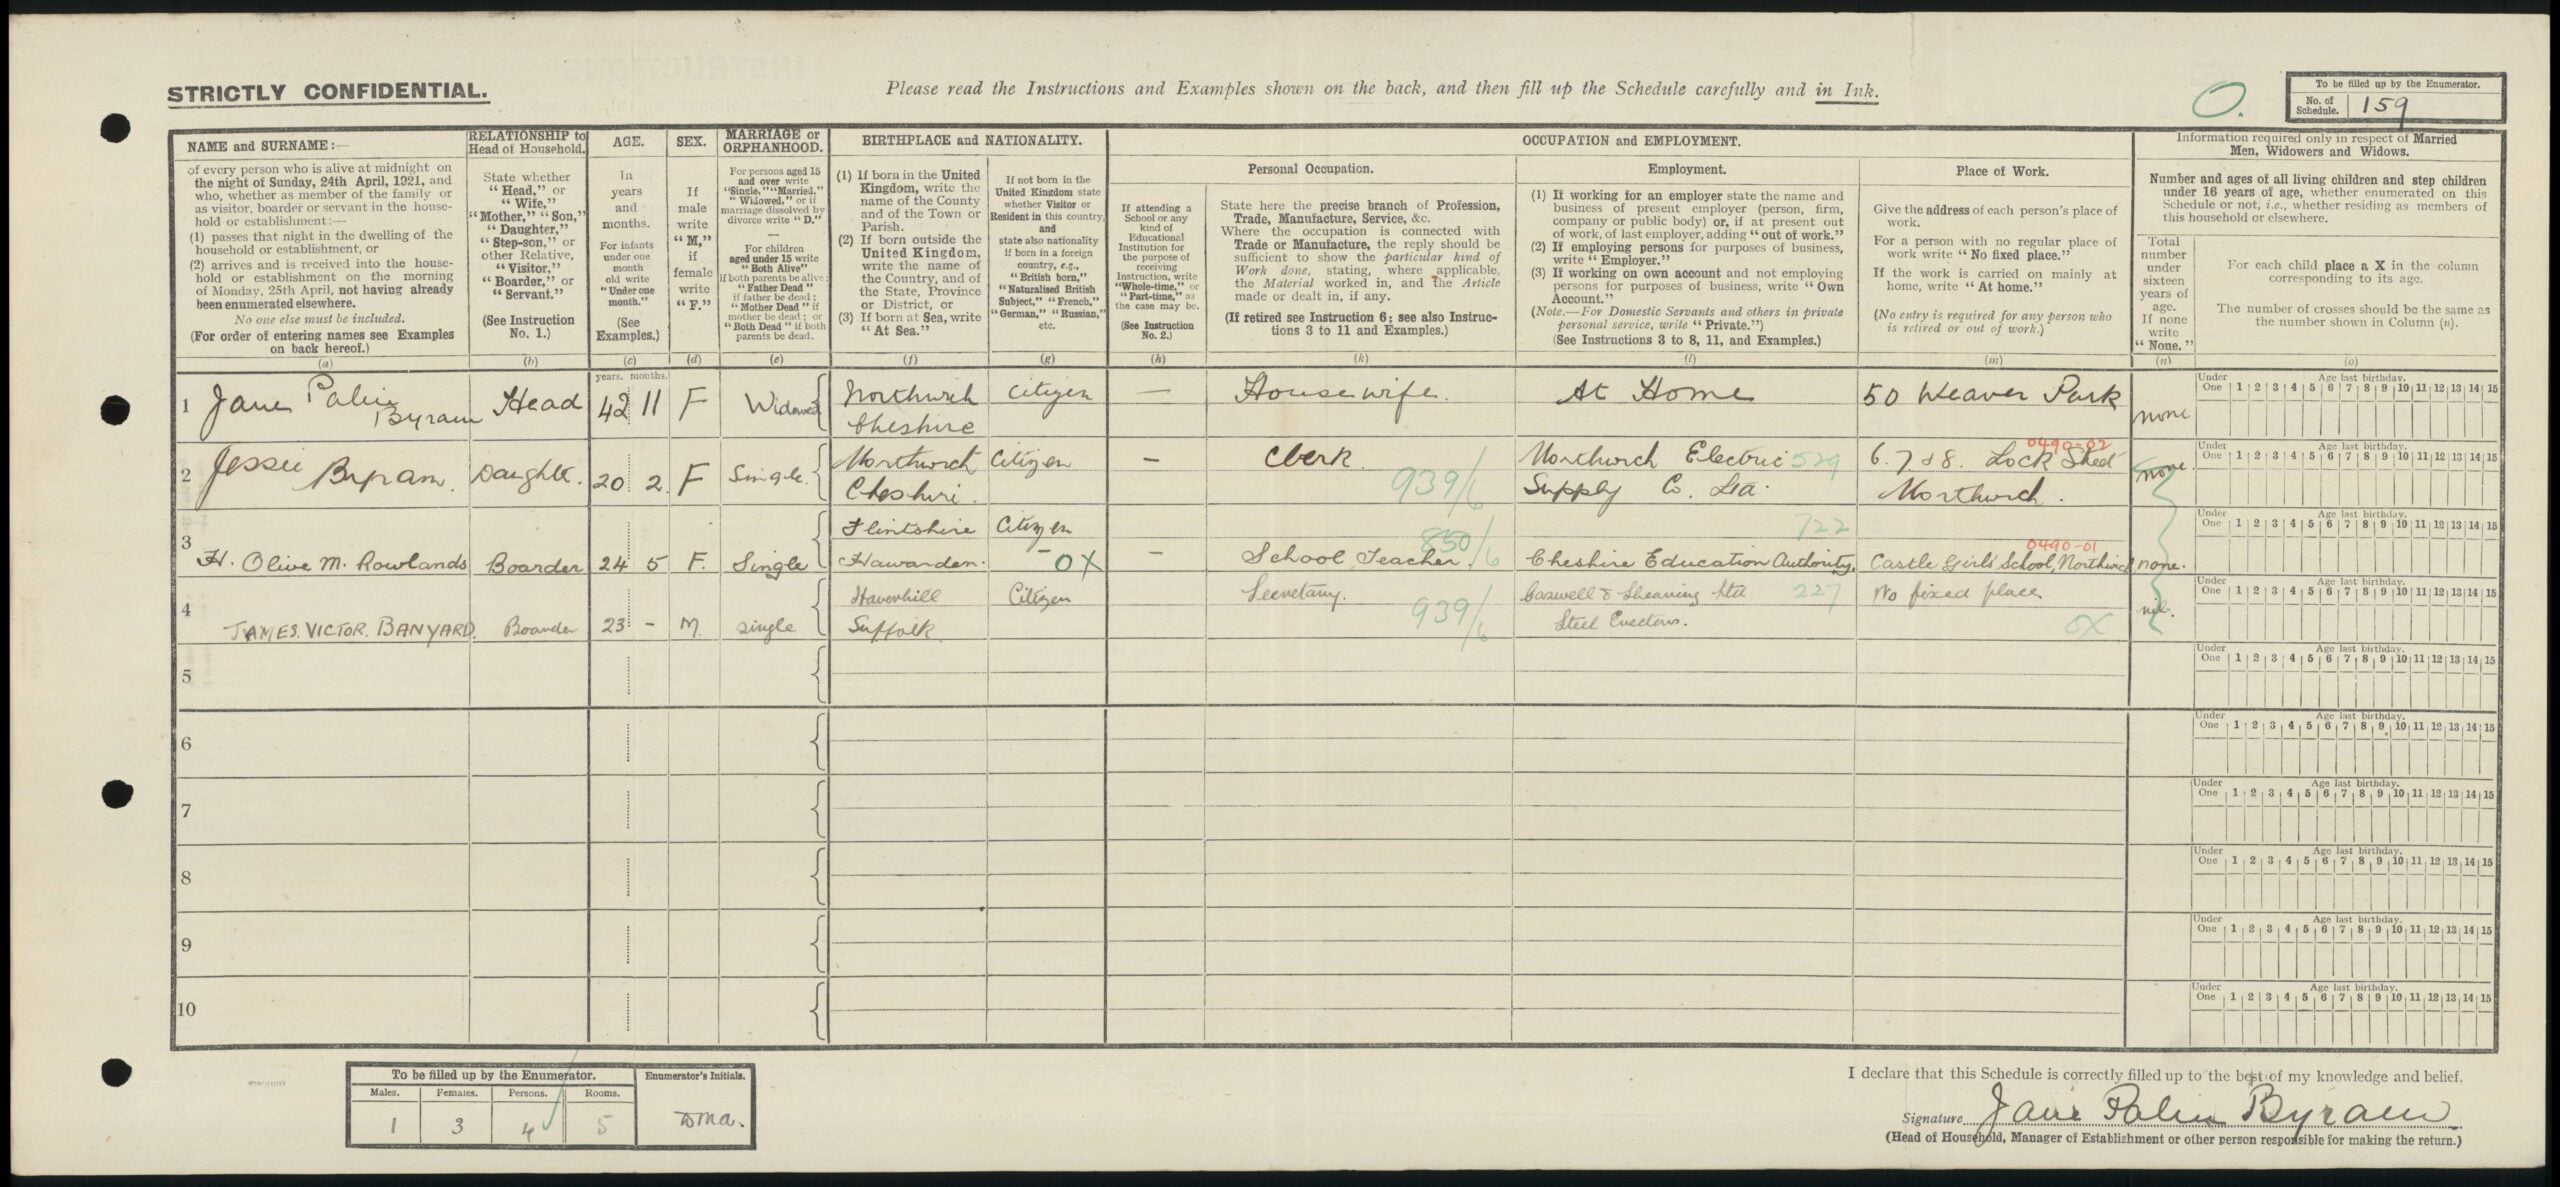 STRICTLY CONFIDENTIAL.
Please read the Instructions and Examples shown on the back, and then fill up the Schedule carefully and in Ink.
O.
To be filled up by the Enumerator.
No. of Schedule. 159
NAME and SURNAME:—
of every person who is alive at midnight on
the night of Sunday, 24th April, 1921, and
who, whether as member of the family or
as visitor, boarder or servant in the house-
hold or establishment:—
(1) passes that night in the dwelling of the
household or establishment, or
(2) arrives and is received into the house-
hold or establishment on the morning
of Monday, 25th April, not having already
been enumerated elsewhere.
No one else must be included.
(For order of entering names see Examples
on back hereof.)
(a)
RELATIONSHIP to
Head of Household.
State whether
"Head," or
"Wife,"
"Mother," "Son,"
"Daughter,"
"Step-son," or
other Relative,
"Visitor,"
"Boarder," or
"Servant."
(See Instruction
No. 1.)
(b)
AGE.
In
years
and
months.
For infants
under one
month
old write
"Under one
month."
(See
Examples.)
(c)
SEX.
If
male
write
"M,"
if
female
write
"F."
(d)
MARRIAGE or
ORPHANHOOD.
For persons aged 15
and over write
"Single," "Married,"
"Widowed," or if
marriage dissolved by
divorce write "D."
—
For children
aged under 15 write
"Both Alive"
if both parents be alive;
"Father Dead"
if father be dead;
"Mother Dead" if
mother be dead; or
"Both Dead" if both
parents be dead.
(e)
BIRTHPLACE and NATIONALITY.
(1) If born in the United
Kingdom, write the
name of the County
and of the Town or
Parish.
(2) If born outside the
United Kingdom,
write the name of
the Country, and of
the State, Province
or District, or
(3) If born at Sea, write
"At Sea."
(f)
If not born in the
United Kingdom state
whether Visitor or
Resident in this country,
and
state also nationality
if born in a foreign
country, e.g.,
"British born,"
"Naturalised British
Subject," "French,"
"German," "Russian,"
etc.
(g)
OCCUPATION and EMPLOYMENT.
If attending a
School or any
kind of
Educational
Institution for
the purpose of
receiving
Instruction, write
"Whole-time," or
"Part-time," as
the case may be.
(See Instruction
No. 2.)
(h)
Personal Occupation.
State here the precise branch of Profession,
Trade, Manufacture, Service, &c.
Where the occupation is connected with
Trade or Manufacture, the reply should be
sufficient to show the particular kind of
Work done, stating, where applicable,
the Material worked in, and the Article
made or dealt in, if any.
(If retired see Instruction 6; see also Instruc-
tions 3 to 11 and Examples.)
(k)
Employment.
(1) If working for an employer state the name and
business of present employer (person, firm,
company or public body) or, if at present out
of work, of last employer, adding "out of work."
(2) If employing persons for purposes of business,
write "Employer."
(3) If working on own account and not employing
persons for purposes of business, write "Own
Account."
(Note.—For Domestic Servants and others in private
personal service, write "Private.")
(See Instructions 3 to 8, 11, and Examples.)
(l)
Place of Work.
Give the address of each person's place of
work.
For a person with no regular place of
work write "No fixed place."
If the work is carried on mainly at
home, write "At home."
(No entry is required for any person who
is retired or out of work.)
(m)
Information required only in respect of Married
Men, Widowers and Widows.
Number and ages of all living children and step children
under 16 years of age, whether enumerated on this
Schedule or not, i.e., whether residing as members of
this household or elsewhere.
Total
number
under
sixteen
years of
age.
If none
write
"None."
(n)
For each child place a X in the column
corresponding to its age.
The number of crosses should be the same as
the number shown in Column (n).
(o)
years. months.
1 Jane Palin Byram Head 42 11 F Widowed Northwich Cheshire Citizen — Housewife. At Home 50 Weaver Park none
Under One Age last birthday. 1 2 3 4 5 6 7 8 9 10 11 12 13 14 15
2 Jessie Byram. Daughter. 20 2. F Single. Northwich Cheshire. Citizen — Clerk. 939/6 Northwich Electric Supply Co. Ltd. 529 6. 7 & 8. Lock Street Northwich. 0490-02 none
Under One Age last birthday. 1 2 3 4 5 6 7 8 9 10 11 12 13 14 15
3 H. Olive M. Rowlands Boarder 24 5 F. Single Flintshire Hawarden. Citizen - OX — School Teacher. 850/6 Cheshire Education Authority. 722 Castle Girls' School, Northwich 0490-01 none.
Under One Age last birthday. 1 2 3 4 5 6 7 8 9 10 11 12 13 14 15
4 JAMES. VICTOR. BANYARD. Boarder 23 - M. single Haverhill Suffolk. Citizen Secretary. 939/6 Caswell & Shearing Ltd Steel Erectors. 227 No fixed place OX nil.
Under One Age last birthday. 1 2 3 4 5 6 7 8 9 10 11 12 13 14 15
5
Under One Age last birthday. 1 2 3 4 5 6 7 8 9 10 11 12 13 14 15
6
Under One Age last birthday. 1 2 3 4 5 6 7 8 9 10 11 12 13 14 15
7
Under One Age last birthday. 1 2 3 4 5 6 7 8 9 10 11 12 13 14 15
8
Under One Age last birthday. 1 2 3 4 5 6 7 8 9 10 11 12 13 14 15
9
Under One Age last birthday. 1 2 3 4 5 6 7 8 9 10 11 12 13 14 15
10
Under One Age last birthday. 1 2 3 4 5 6 7 8 9 10 11 12 13 14 15
To be filled up by the Enumerator.
Males. Females. Persons. Rooms.
1 3 4 5
Enumerator's Initials.
I declare that this Schedule is correctly filled up to the best of my knowledge and belief.
Signature Jane Palin Byram
(Head of Household, Manager of Establishment or other person responsible for making the return.)